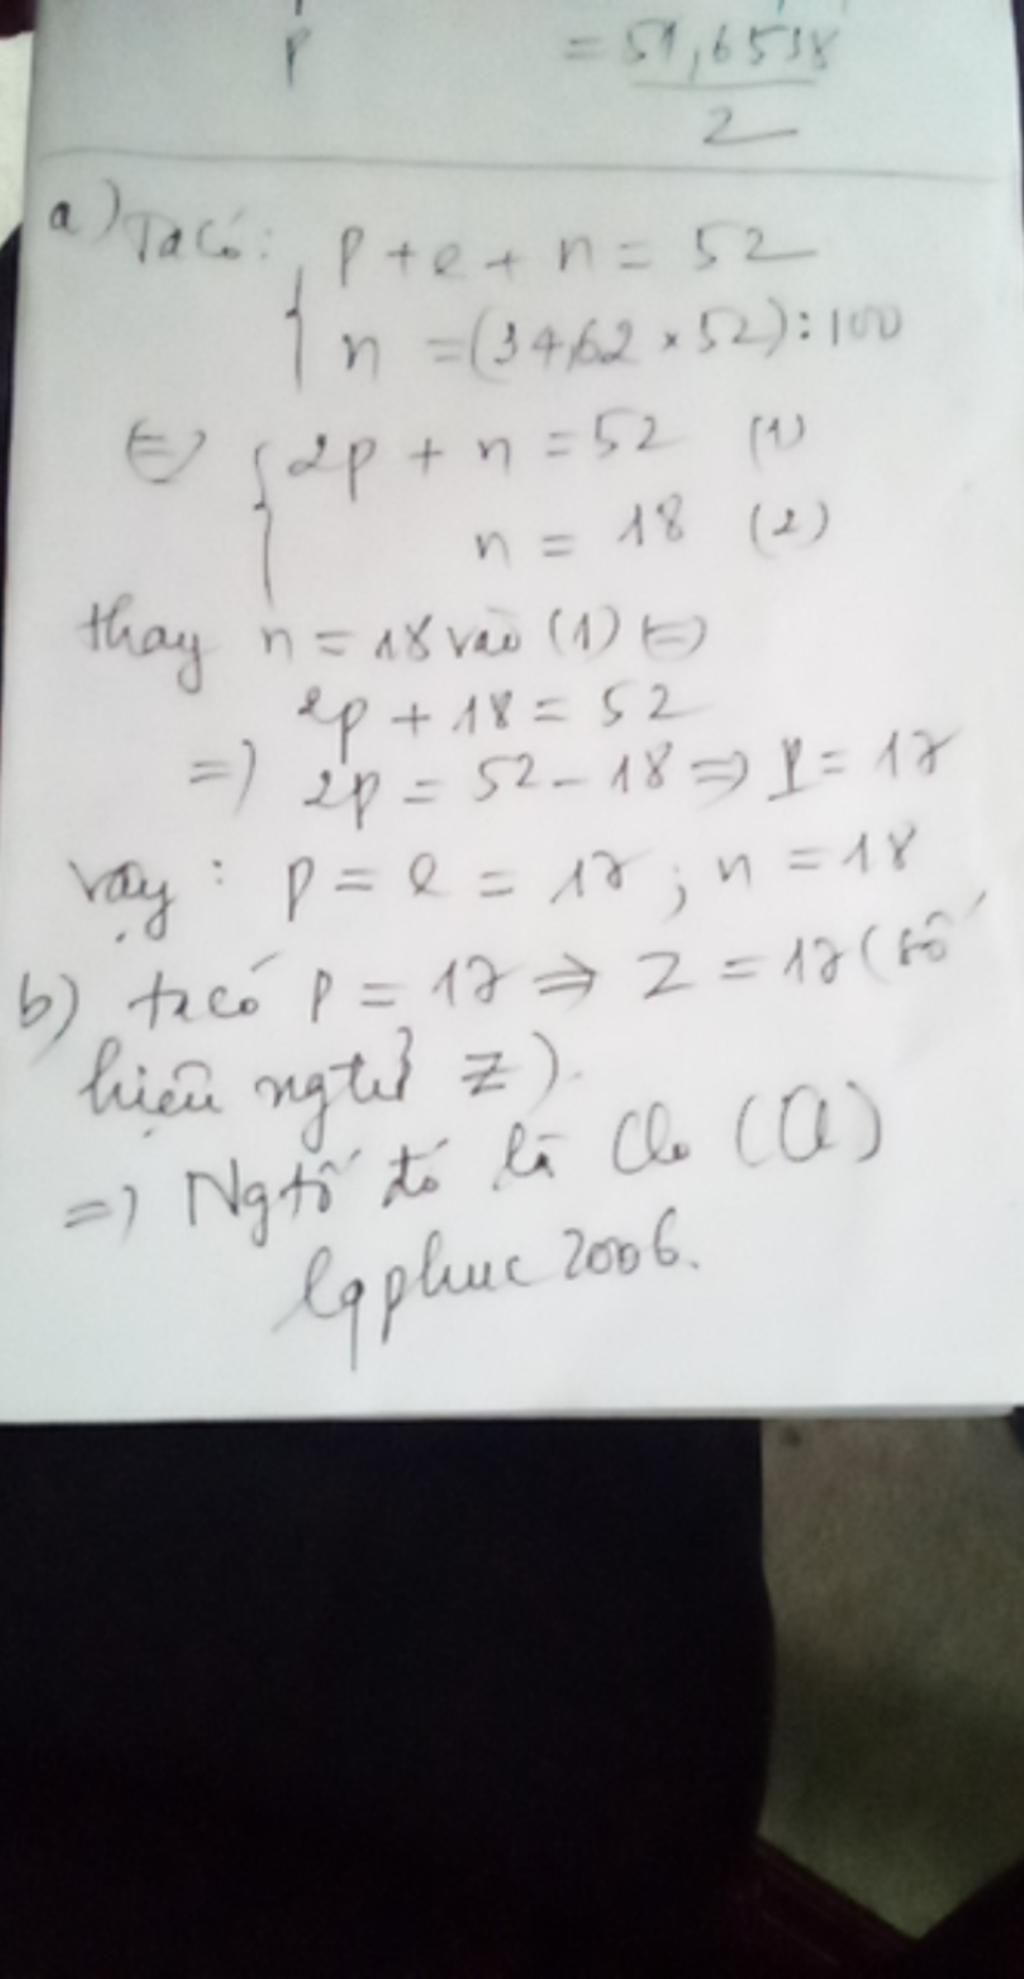 P = 51,6538
2
a) Ta có: p + e + n = 52
n = (34,62 × 52) : 100
⇔ 2p + n = 52 (1)
n = 18 (2)
thay n = 18 vào (1) ⇔
2p + 18 = 52
=> 2p = 52 - 18 => P = 17
Vậy : p = e = 17 ; n = 18
b) ta có p = 17 => Z = 17 (số
hiệu ngtử Z).
=> Ngtố đó là Clo (Cl)
lqphuc 2006.